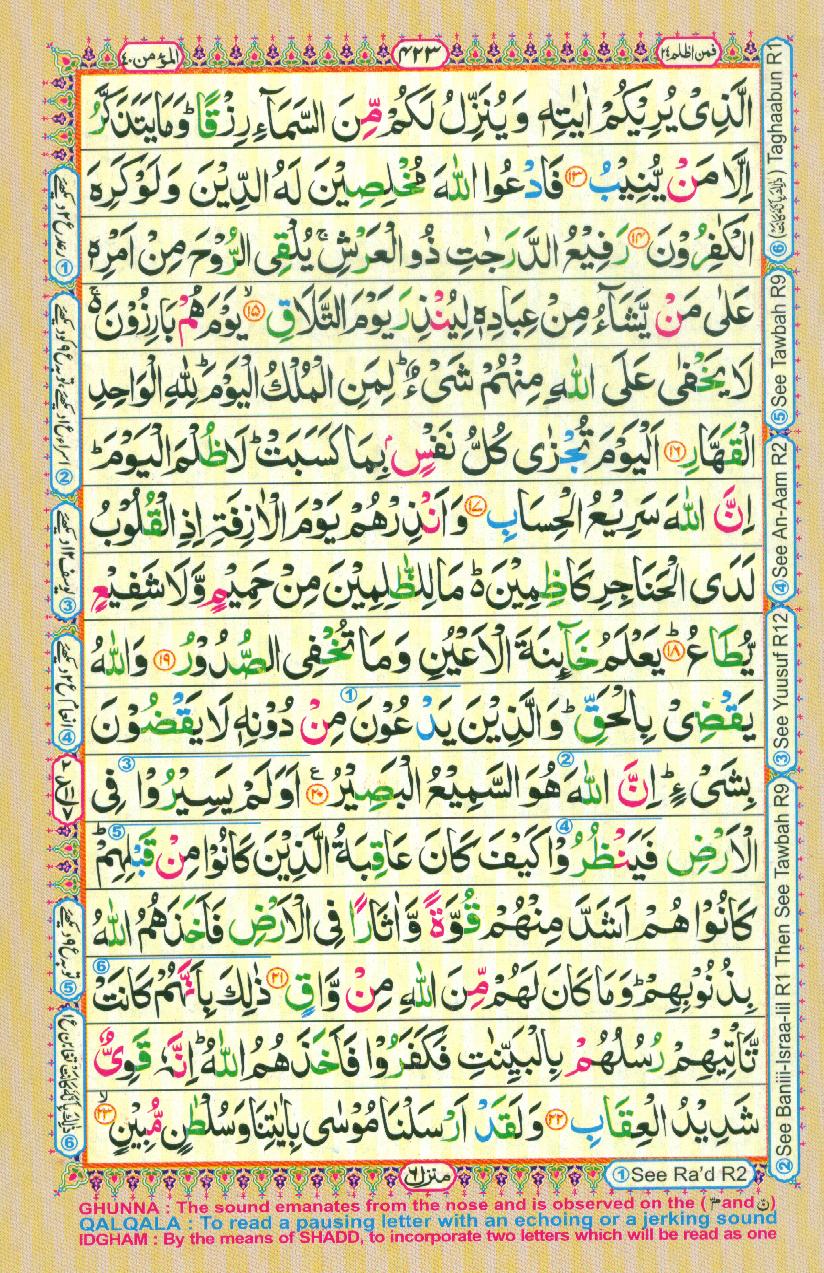 فمن اظلم ٢٤
٤٢٣
المؤمن ٤٠
الَّذِىْ يُرِيْكُمْ اٰيٰتِهٖ وَيُنَزِّلُ لَكُمْ مِّنَ السَّمَآءِ رِزْقًا ؕ وَمَا يَتَذَكَّرُ
اِلَّا مَنْ يُّنِيْبُ ﴿۱۳﴾ فَادْعُوا اللّٰهَ مُخْلِصِيْنَ لَهُ الدِّيْنَ وَلَوْ كَرِهَ
الْكٰفِرُوْنَ ﴿۱۴﴾ رَفِيْعُ الدَّرَجٰتِ ذُو الْعَرْشِ ۚ يُلْقِى الرُّوْحَ مِنْ اَمْرِهٖ
عَلٰى مَنْ يَّشَآءُ مِنْ عِبَادِهٖ لِيُنْذِرَ يَوْمَ التَّلَاقِ ۙ﴿۱۵﴾ يَوْمَ هُمْ بَارِزُوْنَ ۬ۚ
لَا يَخْفٰى عَلَى اللّٰهِ مِنْهُمْ شَىْءٌ ؕ لِمَنِ الْمُلْكُ الْيَوْمَ ؕ لِلّٰهِ الْوَاحِدِ
الْقَهَّارِ ﴿۱۶﴾ اَلْيَوْمَ تُجْزٰى كُلُّ نَفْسٍۭ بِمَا كَسَبَتْ ؕ لَا ظُلْمَ الْيَوْمَ ؕ
اِنَّ اللّٰهَ سَرِيْعُ الْحِسَابِ ﴿۱۷﴾ وَاَنْذِرْهُمْ يَوْمَ الْاٰزِفَةِ اِذِ الْقُلُوْبُ
لَدَى الْحَنَاجِرِ كَاظِمِيْنَ ؕ۬ مَا لِلظّٰلِمِيْنَ مِنْ حَمِيْمٍ وَّلَا شَفِيْعٍ
يُّطَاعُ ؕ﴿۱۸﴾ يَعْلَمُ خَآئِنَةَ الْاَعْيُنِ وَمَا تُخْفِى الصُّدُوْرُ ﴿۱۹﴾ وَاللّٰهُ
يَقْضِىْ بِالْحَقِّ ؕ وَالَّذِيْنَ يَدْعُوْنَ ① مِنْ دُوْنِهٖ لَا يَقْضُوْنَ
بِشَىْءٍ ؕ ② اِنَّ اللّٰهَ هُوَ السَّمِيْعُ الْبَصِيْرُ ﴿۲۰﴾ ③ اَوَلَمْ يَسِيْرُوْا فِى
الْاَرْضِ فَيَنْظُرُوْا ④ كَيْفَ كَانَ عَاقِبَةُ الَّذِيْنَ كَانُوْا مِنْ قَبْلِهِمْ ؕ ⑤
كَانُوْا هُمْ اَشَدَّ مِنْهُمْ قُوَّةً وَّاٰثَارًا فِى الْاَرْضِ فَاَخَذَهُمُ اللّٰهُ
بِذُنُوْبِهِمْ ؕ وَمَا كَانَ لَهُمْ مِّنَ اللّٰهِ مِنْ وَّاقٍ ﴿۲۱﴾ ذٰلِكَ بِاَنَّهُمْ كَانَتْ ⑥
تَّاْتِيْهِمْ رُسُلُهُمْ بِالْبَيِّنٰتِ فَكَفَرُوْا فَاَخَذَهُمُ اللّٰهُ ؕ اِنَّهٗ قَوِىٌّ
شَدِيْدُ الْعِقَابِ ﴿۲۲﴾ وَلَقَدْ اَرْسَلْنَا مُوْسٰى بِاٰيٰتِنَا وَسُلْطٰنٍ مُّبِيْنٍ ۙ﴿۲۳﴾
① See Ra'd R2
② See Baniii-Israa-Iil R1 Then See Tawbah R9
③ See Yuusuf R12
④ See An-Aam R2
⑤ See Tawbah R9
⑥ Taghaabun R1
منزل ٦
GHUNNA : The sound emanates from the nose and is observed on the ( م and ن )
QALQALA : To read a pausing letter with an echoing or a jerking sound
IDGHAM : By the means of SHADD, to incorporate two letters which will be read as one